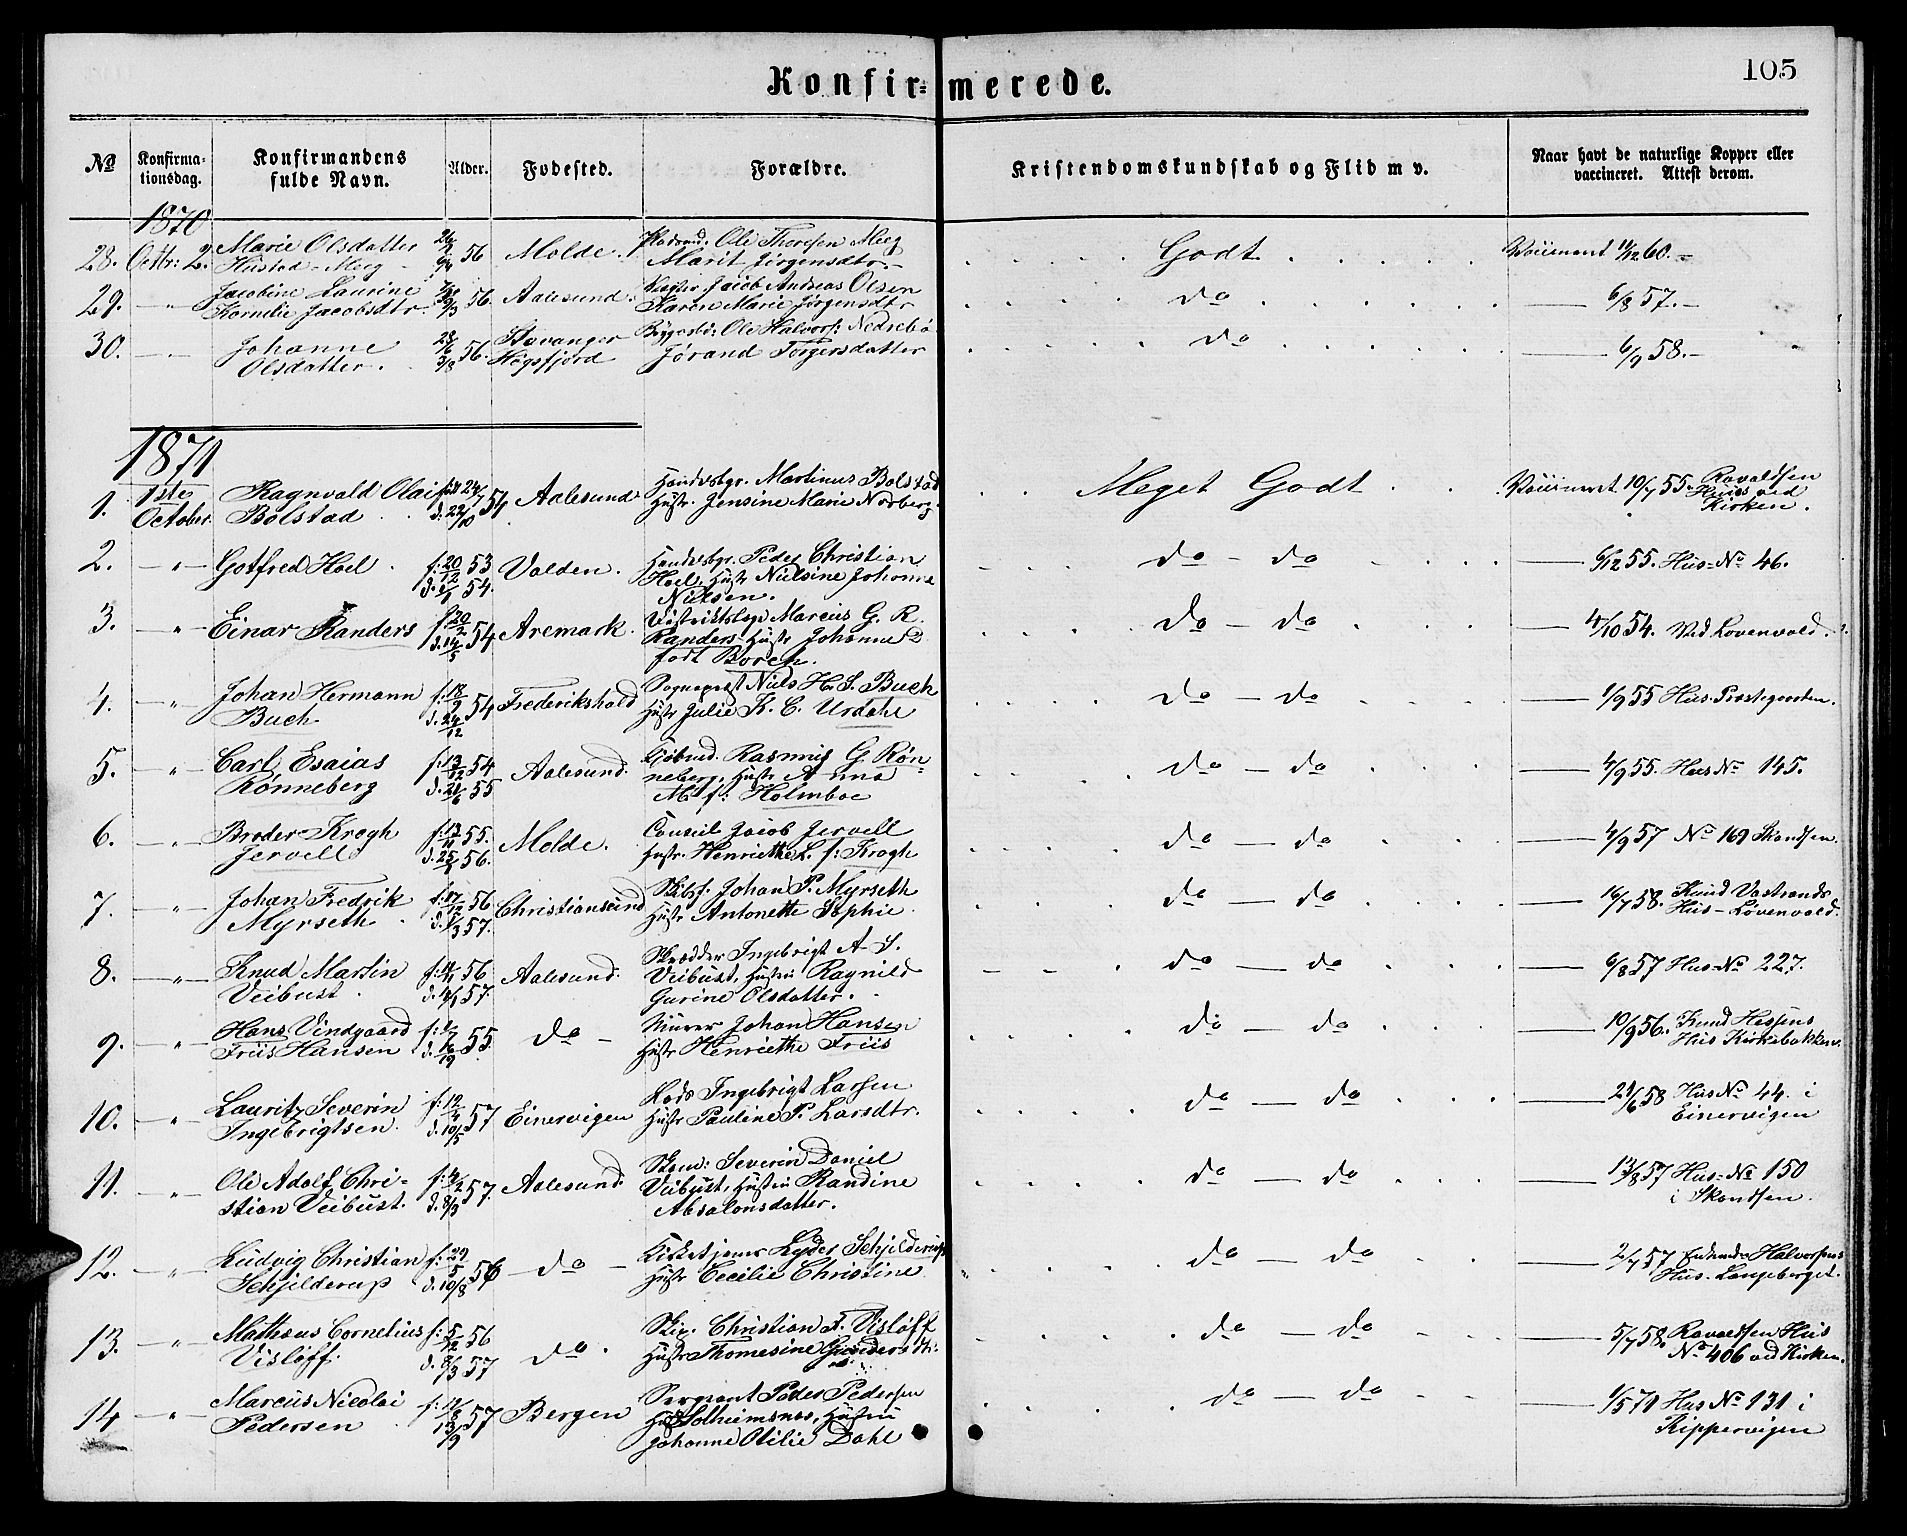 Konfir=merede.
105
No
Konfirma-
tionsdag.
Konfirmandens
fulde Navn.
Alder.
Fødested.
Forældre.
Kristendomskundskab og Flid m v.
Naar havt de naturlige Kopper eller
vaccineret. Attest derom.
1870
28. Octbr: 2. Marie Olsdatter 56 Molde. Ole Thoresen Meeg Godt
Hustad-Meeg Marit Jørgensdtr. 11/12 60.
29. -"- Jacobine Laurine 56. Aalesund. Jacob Andreas Olsen do 6/8 57.
Kornelie Jacobsdtr. Karen Marie Jørgensdtr
30. -"- Johanne 28/6 56. Stavanger Ole Halvors: Nedrebø do 6/9 58.
Olsdatter. 3/8 Høgsfjord Jørand Torgersdatter
1871
1. 1ste Ragnvald Olai 54 Aalesund Handelsbgr. Martinus Bolstad Meget Godt 10/7 55. Ravaldsen
October. Bolstad d. 22/10 Hustr. Jensine Marie Norberg Huus ved
Kirken.
2. -"- Gotfred Hoel f: 20/12 53 Volden. Handelsbgr. Peder Christian do - do 6/12 55. Hus-No 46.
d. 54. Hoel, Hustr Nielsine Johanne
Nielsen.
3. -"- Einar Randers f. 20/2 54 Aremark. Distriktslæge Marcus G. R. do - do 4/10 54. Ved Lovenvold.
d. 14/5 Randers Hustr Johanne
født Borch.
4. -"- Johan Hermann f. 18/9 54 Frederikshald Sognepræst Niels H. S. Buch do - do 1/9 55 Hus. Præstegaarden.
Buch d. 24/12 Hustr Julie K. C. Urdahl
5. -"- Carl Esaias f. 13/12 54 Aalesund. Kjøbmd. Rasmus G. Røn- do - do 4/9 55. Hus No 145.
Rønneberg d. 21/6 55 neberg, Hustr Anna
M. f: Holmboe
6. -"- Broder Krogh f: 13/11 55. Molde. Consul Jacob Jervell do - do 4/9 57 No 169 Skandsen.
Jervell d. 56. Hustr. Henriette L. f: Krogh
7. -"- Johan Fredrik f. 17/12 56 Christiansund Skibsf. Johan P. Myrseth do - do 16/7 58. Knud Vastrands
Myrseth d. 1/3 57. Hustr Antonette Sophie. Hus - Løvenvold.
8. -"- Knud Martin 56 Aalesund. Skrædder Ingebrigt A. S. do - do 6/8 57 Hus-No 227.
Veibust. 57. Veibust, Hustru Ragnild
Gurine Olsdatter.
9. -"- Hans Vindgaard 55 do - Murer Johan Hansen do - do 10/9 56. Knud Hessens
Friis Hansen Hustr Henriethe Friis Hus Kirkebakken.
10. -"- Lauritz Severin f: 12/4 57 Einervigen Lods Ingebrigt Larsen do - do 21/6 58 Hus No 44. i
Ingebrigtsen. d. 10/5 Hustr Pauline P. Larsdtr. Einervigen
11. -"- Ole Adolf Chri- 57. Aalesund. Severin Daniel do - do 13/8 57 Hus-No 150
stian Veibust. d. 8/3 Veibust, Hustru Randine i Skandsen.
Absalonsdatter.
12. -"- Ludvig Christian f: 29/5 56 - do - Kirketjener Lyder Schjelderup do - do 2/7 57 Enkende Halvorsens
Schjelderup d. 10/8 Hustr Cecilie Christine Hus. Langeberget.
13. -"- Mathæus Cornelius f: 5/12 56 do. Skip. Christian A. Visløff do - do 5/7 58. Ravaldsen Hus
Visløff. d. 8/3 57 Hustr Thomesine Gundersdtr: No 406 ved Kirken.
14 -"- Marcus Nicolai 57 Bergen Sergeant Peder Pedersen do - do 1/5 71 Hus No 131 i
Pedersen 13/9 Solheimsnes, Hustru Kippervigen
Johanne Otilie Dahl